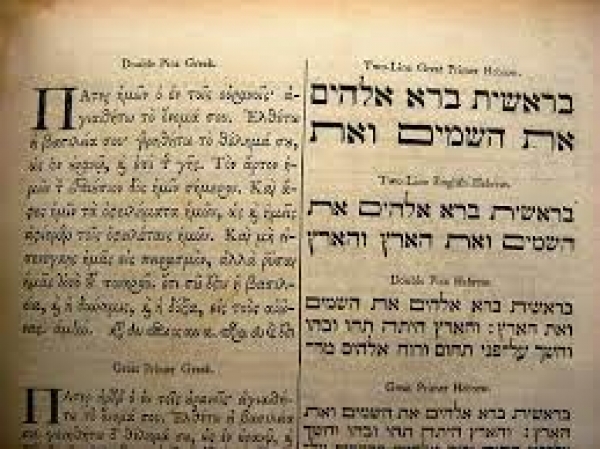 Double Pica Greek.
ΠΑτηρ ἡμῶν ὁ ἐν τοῖς οὐρανοῖς· ἁ-
γιασθήτω τὸ ὄνομά σου. Ἐλθέτω
ἡ βασιλεία σου· γενηθήτω τὸ θέλημά σου,
ὡς ἐν οὐρανῷ, καὶ ἐπὶ τῆς γῆς. Τὸν ἄρτον ἡ-
μῶν τὸν ἐπιούσιον δὸς ἡμῖν σήμερον. Καὶ ἄ-
φες ἡμῖν τὰ ὀφειλήματα ἡμῶν, ὡς καὶ ἡμεῖς
ἀφίεμεν τοῖς ὀφειλέταις ἡμῶν. Καὶ μὴ εἰ-
σενέγκῃς ἡμᾶς εἰς πειρασμὸν, ἀλλὰ ῥῦσαι
ἡμᾶς ἀπὸ τοῦ πονηροῦ. ὅτι σοῦ ἐστιν ἡ βασι-
λεία, καὶ ἡ δύναμις, καὶ ἡ δόξα, εἰς τοὺς αἰῶ-
νας. ἀμήν.
Great Primer Greek.
ΠΑτερ ἡμῶν ὁ ἐν τοῖς οὐρανοῖς· ἁγιασθή-
τω τὸ ὄνομά σου. Ἐλθέτω ἡ βασιλεία
σου· γενηθήτω τὸ θέλημά σου, ὡς ἐν οὐρανῷ, καὶ
Two-Line Great Primer Hebrew.
בראשית ברא אלהים
את השמים ואת
Two-Line English Hebrew.
בראשית ברא אלהים את
השמים ואת הארץ והארץ
Double Pica Hebrew.
בראשית ברא אלהים את השמים
ואת הארץ: והארץ היתה תהו ובהו
וחשך על־פני תהום ורוח אלהים מרד
Great Primer Hebrew.
בראשית ברא אלהים את השמים ואת
הארץ: והארץ היתה תהו ובהו וחשך